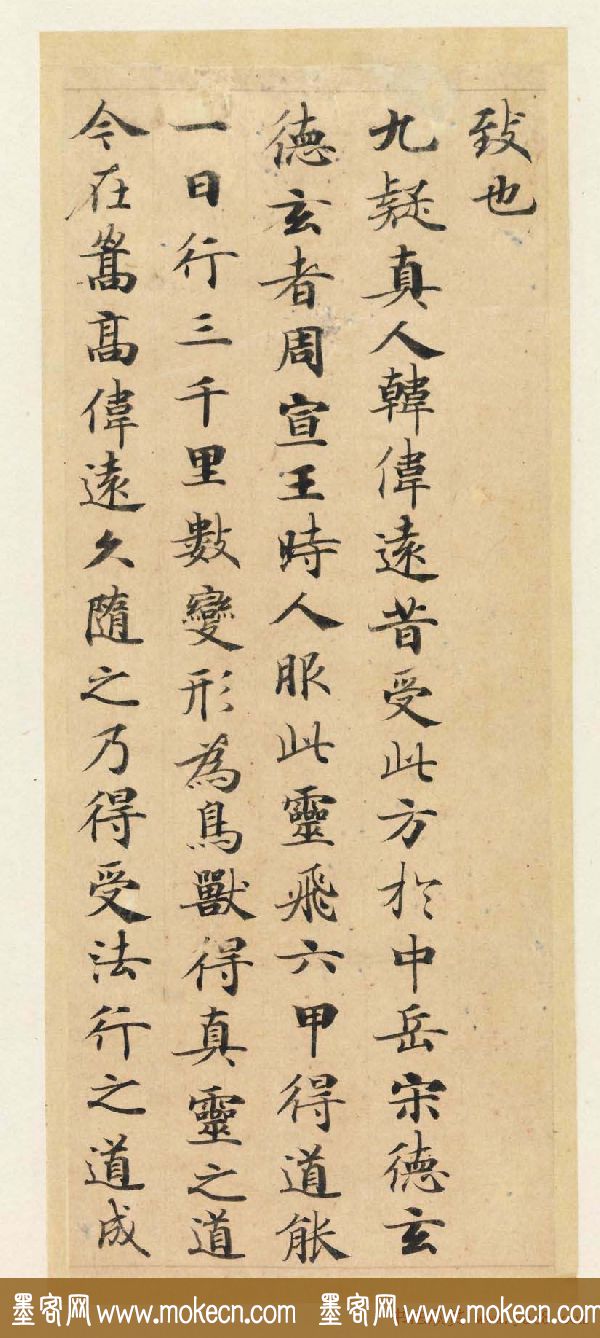 致也
九疑真人韓偉遠昔受此方於中岳宋德玄
德玄者周宣王時人服此靈飛六甲得道能
一日行三千里數變形為鳥獸得真靈之道
今在嵩高偉遠久隨之乃得受法行之道成
墨客网 www.mokecn.com 墨客网 www.mokecn.com